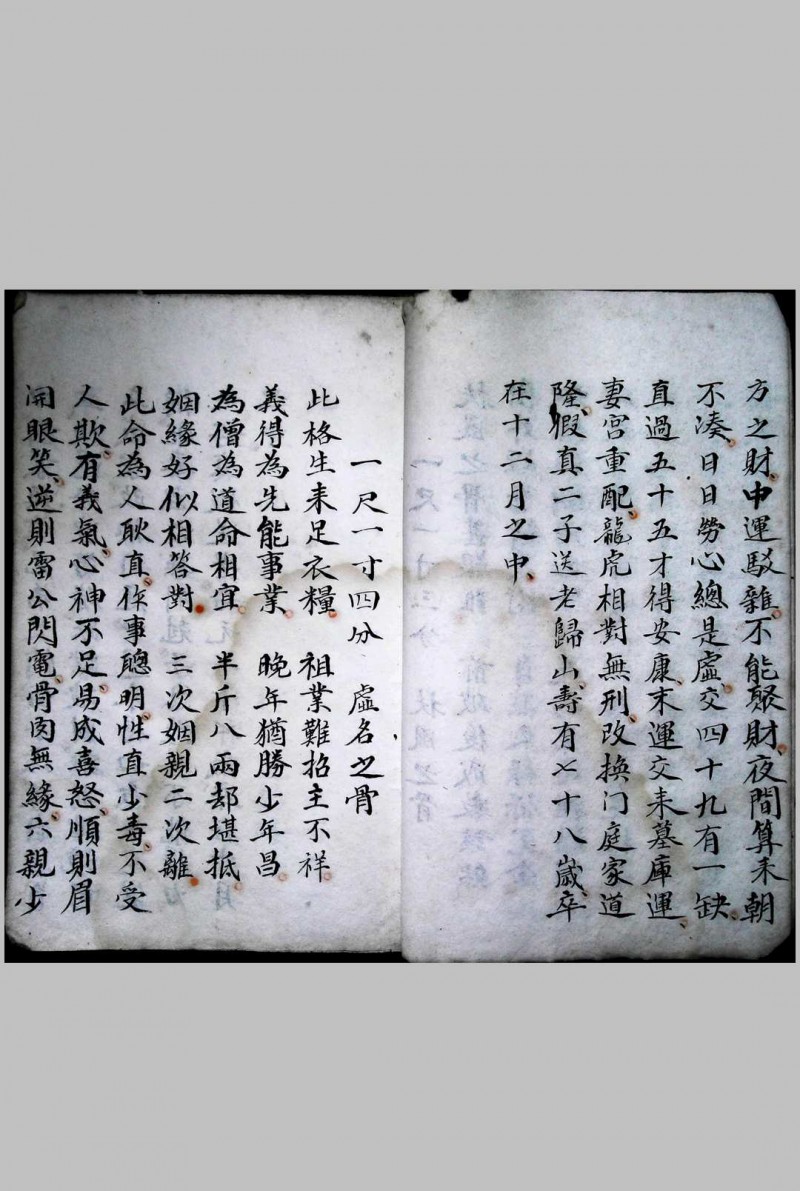 方之財中運駁雜不能聚財夜間算来朝
不湊日日勞心總是虛交四十九有一缺
直過五十五才得安康末運交来墓庫運
妻宮重配龍虎相對無刑改換门庭家道
隆假真二子送老歸山壽有七十八歲卒
在十二月之中
一尺一寸四分 虛名之骨
此格生来足衣糧 祖業難招主不祥
義得為先能事業 晚年猶勝少年昌
為僧為道命相宜 半斤八兩却堪抵
姻緣好似相答對 三次姻親二次離
此命為人耿直作事聰明性直少毒不受
人欺有義氣心神不足易成喜怒順則眉
開眼笑逆則雷公閃電骨肉無緣六親少